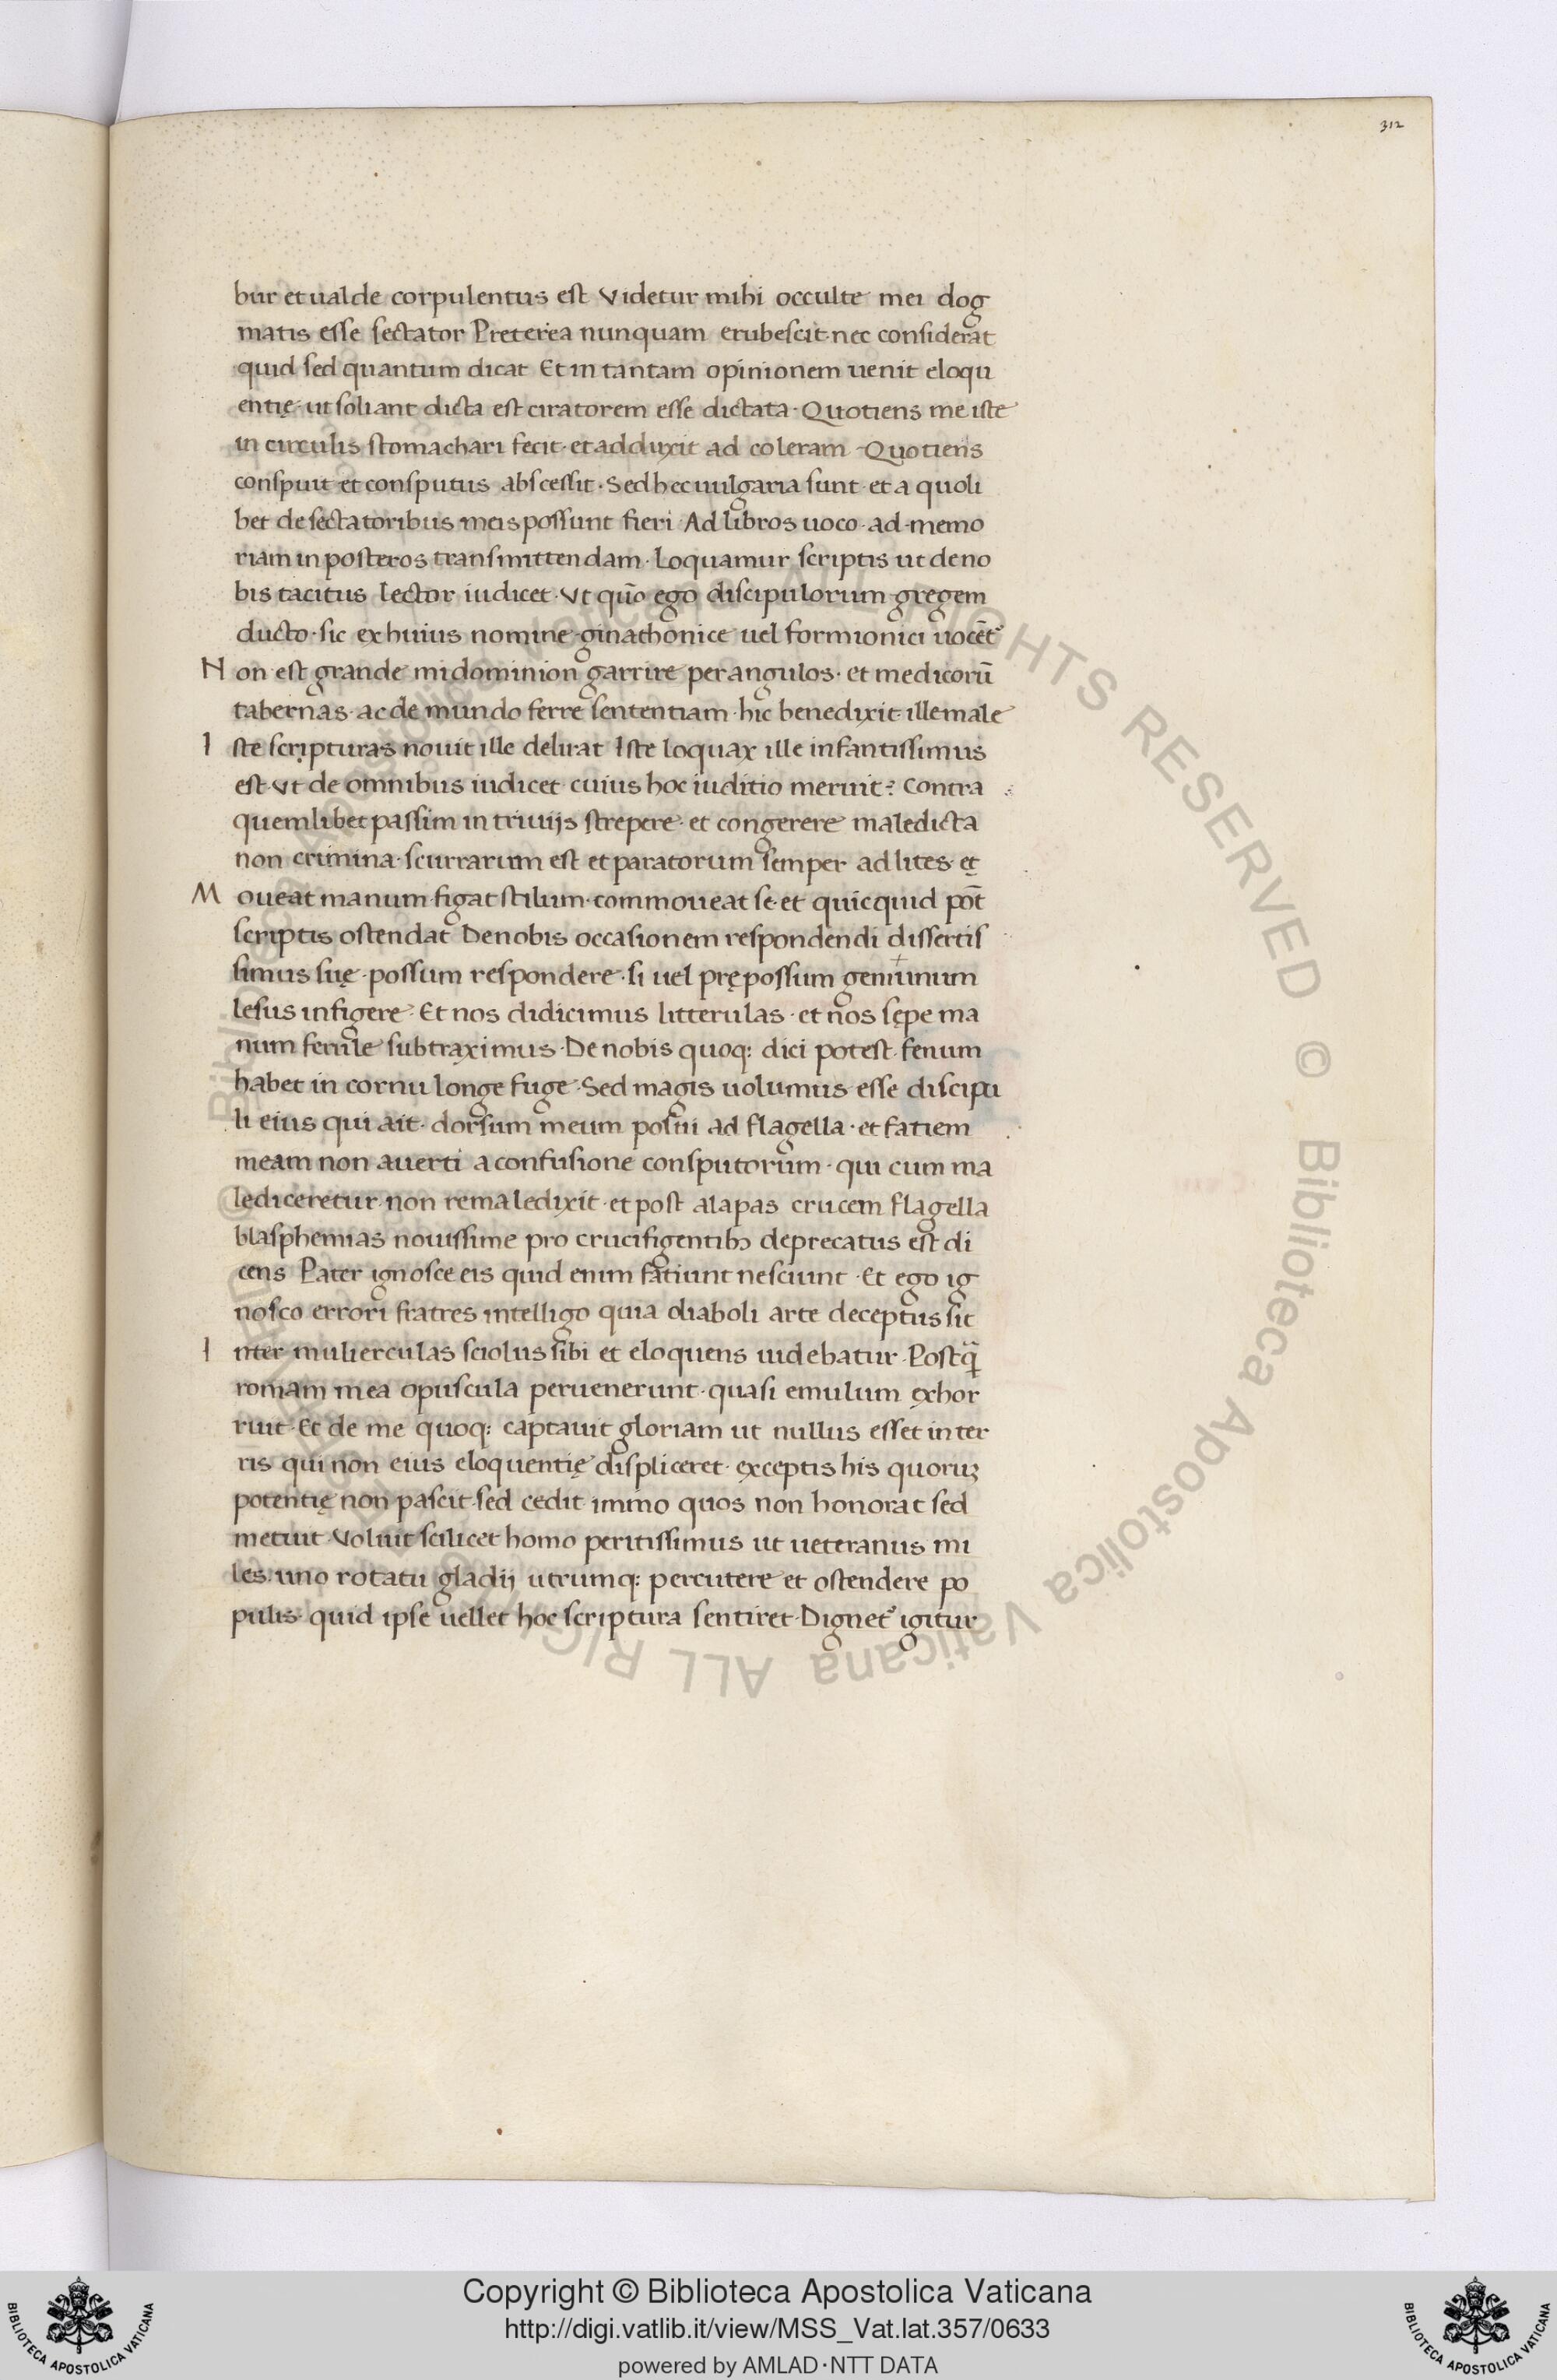 312
bur et ualde corpulentus est Videtur mihi occulte mei dog
matis esse sectator Preterea nunquam erubescit nec considerat
quid sed quantum dicat Et in tantam opinionem uenit eloqu
entię ut soliant dicta est ciratorem esse dictata · Quotiens me iste
in circulis stomachari fecit · et adduxit ad coleram · Quotiens
conspuit et consputus abscessit · Sed hec uulgaria sunt · et a quoli
bet de sectatoribus meis possunt fieri · Ad libros uoco · ad memo
riam in posteros transmittendam · Loquamur scriptis ut de no
bis tacitus lector iudicet · Vt quō ego discipulorum gregem
ducto · sic ex huius nomine ginathonice uel formionici uocēt᷑
Non est grande mi dominion garrire per angulos · et medicorū
tabernas · ac de mundo ferre sententiam · hic benedixit ille male
Iste scripturas nouit ille delirat Iste loquax ille infantissimus
est · Vt de omnibus iudicet cuius hoc iuditio meruit? Contra
quemlibet passim in triuijs strepere · et congerere maledicta
non crimina · scurrarum est et paratorum semper ad lites · et
Moueat manum · figat stilum · commoueat se · et quicquid pōt
scriptis ostendat De nobis occasionem respondendi dissertis
simus suę · possum respondere · si uel prępossum geniunum
lesus infigere · Et nos didicimus litterulas · et nos sępe ma
num ferule subtraximus · De nobis quoq: dici potest · fenum
habet in cornu longe fuge · Sed magis uolumus esse discipu
li eius qui ait · dorsum meum posui ad flagella · et fatiem
meam non auerti a confusione consputorum · qui cum ma
lediceretur non remaledixit · et post alapas crucem flagella
blasphemias nouissime pro crucifigentibꝫ deprecatus est di
cens Pater ignosce eis quid enim fatiunt nesciunt · Et ego ig
nosco errori fratres intelligo quia diaboli arte deceptus sit
Inter mulierculas sciolus sibi et eloquens uidebatur · Postq̄
romam mea opuscula peruenerunt · quasi emulum exhor
ruit · Et de me quoq: captauit gloriam ut nullus esset in ter
ris qui non eius eloquentię displiceret · exceptis his quoruꝫ
potentię non pascit · sed cedit immo quos non honorat sed
metuit · Voluit scilicet homo peritissimus ut ueteranus mi
les uno rotatu gladij utrumq: percutere et ostendere po
pulis quid ipse uellet hoc scriptura sentiret · Dignet᷑ igitur
Copyright © Biblioteca Apostolica Vaticana
http://digi.vatlib.it/view/MSS_Vat.lat.357/0633
powered by AMLAD·NTT DATA